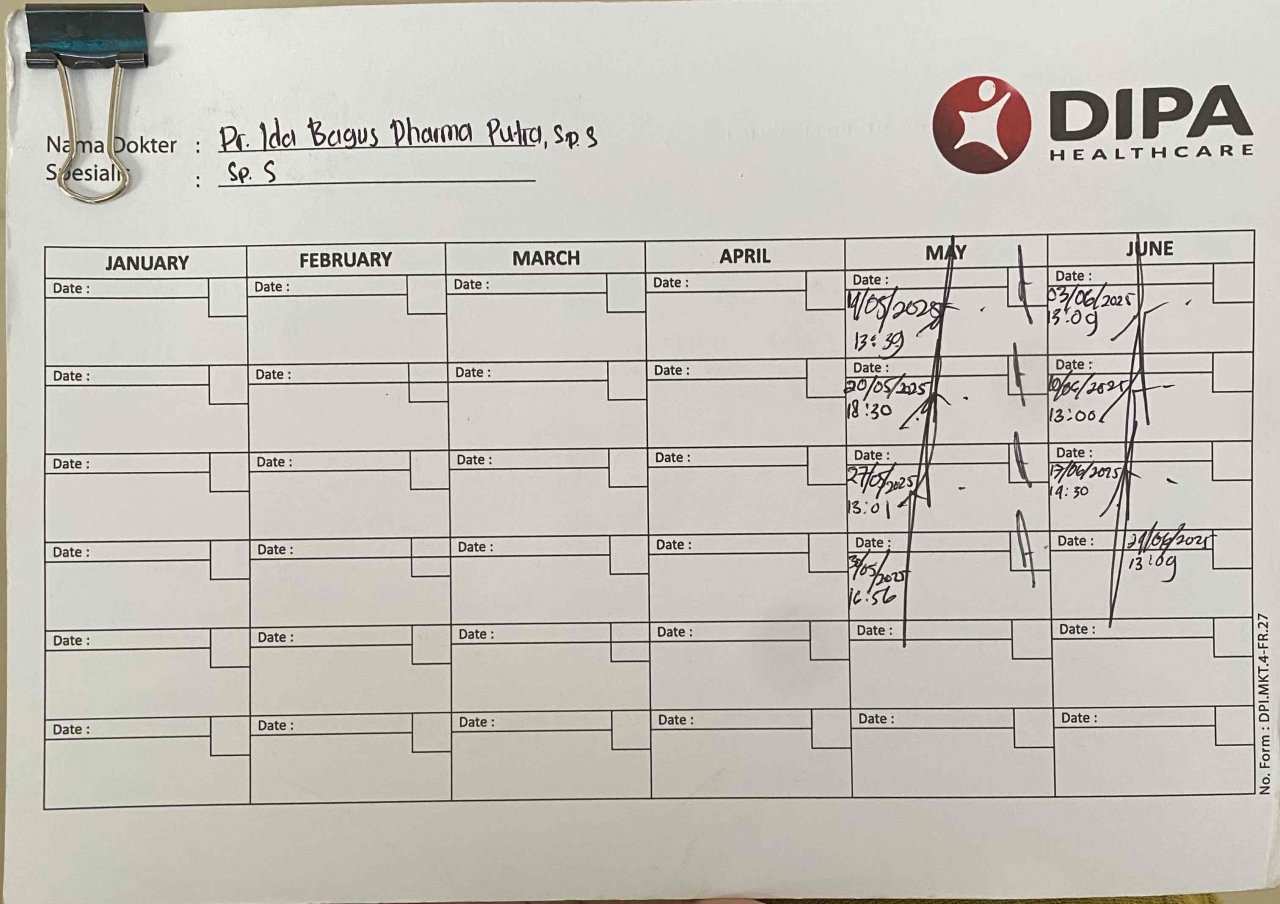 DIPA
HEALTHCARE
Nama Dokter : Dr. Ida Bagus Dharma Putra, Sp. S
Spesialis : Sp. S
JANUARY FEBRUARY MARCH APRIL MAY JUNE
Date : Date : Date : Date : Date : Date :
/05/2025 03/06/2025
13:39 13:09
Date : Date : Date : Date : Date : Date :
20/05/2025 10/06/2025
18:30 13:00
Date : Date : Date : Date : Date : Date :
27/05/2025 17/06/2025
13:01 14:30
Date : Date : Date : Date : Date : Date : 24/06/2025
/05/2025 13:09
16:56
Date : Date : Date : Date : Date : Date :
Date : Date : Date : Date : Date : Date :
No. Form : DPI.MKT.4-FR.27